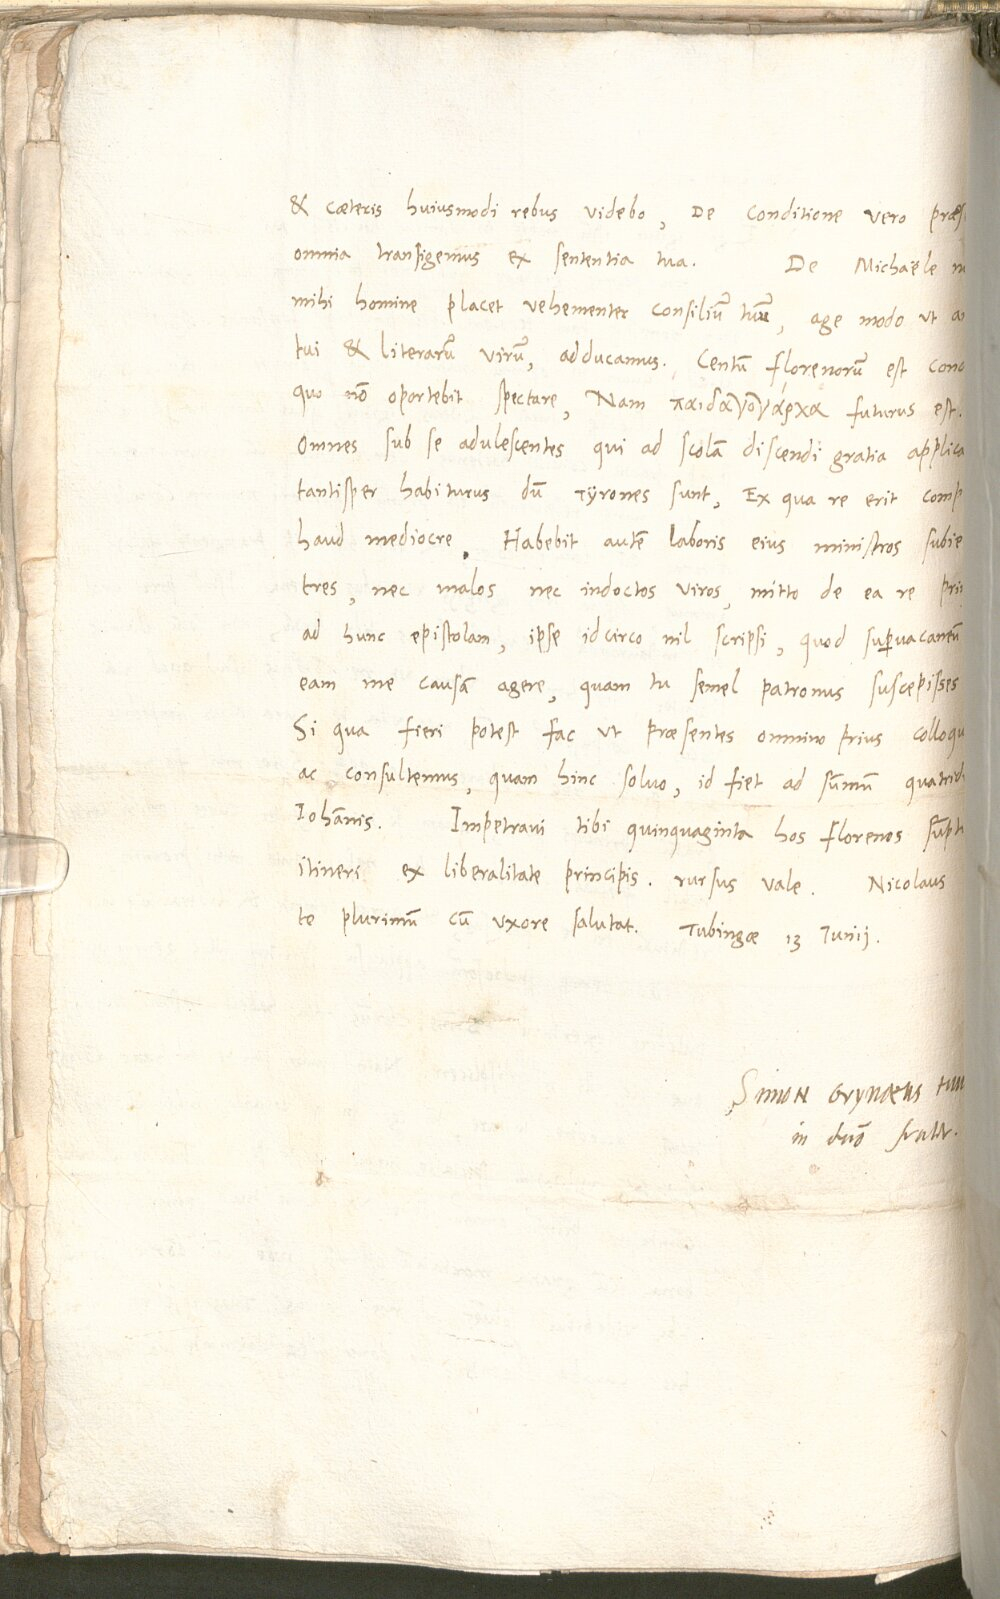 & cæteris huiusmodi rebus videbo, De Conditione vero præs
omnia transigemus ex sententia tua. De Michaële
mihi homine placet vehementer consiliũ tuũ, age modo ut
tui & literarũ virũ, adducamus. Centũ florenorũ est cond
quo nõ oportebit spectare, Nam παιδαγογάρχα futurus est.
Omnes sub se adulescentes qui ad scolã discendi gratia applica
tantisper habiturus dũ Tÿrones sunt, Ex qua re erit comp
haud mediocre. Habebit autẽ laboris eius ministros subie
tres, nec malos nec indoctos viros, mitto de ea re prin
ad hunc epistolam, ipse idcirco nil scripsi, quod supvacaneũ
eam me causã agere, quam tu semel patronus suscepisses
Si qua fieri potest fac ut præsentes omnino prius colloqu
ac consultemus, quam hinc solvo, id fiet ad sũmũ quatridu
Iohãnis. Impetravi tibi quinquaginta hos florenos sũpt
itineris ex liberalitate principis. rursus vale. Nicolaus
te plurimũ cũ uxore salutat. Tubingæ 13 Iunij.
Simon Grynæus tuu
in dnõ frater.